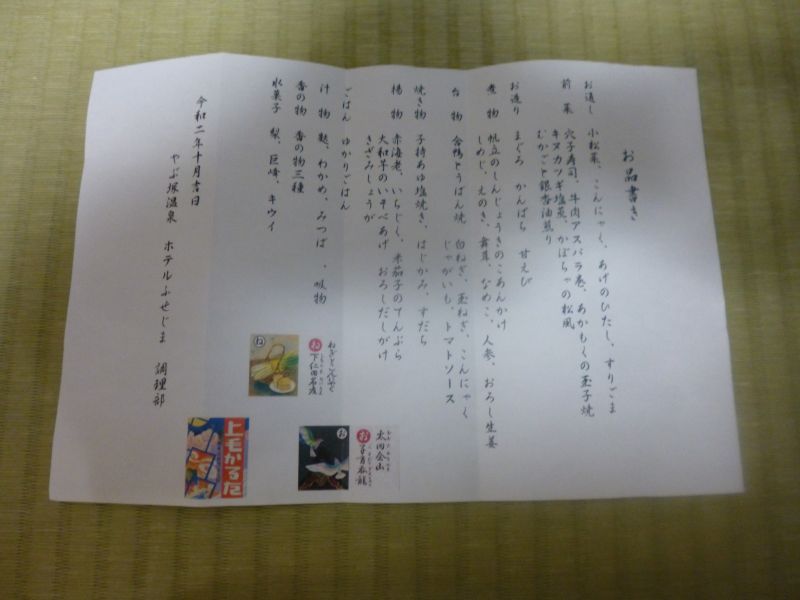 お品書き
お通し 小松菜、こんにゃく、あげのひたし、すりごま
前菜 穴子寿司、牛肉アスパラ巻、あかもくの玉子焼
キヌカツギ塩蒸、かぼちゃの松風
むかごと銀杏油煎り
お造り まぐろ かんぱち 甘えび
煮物 帆立のしんじょうきのこあんかけ
しめじ、えのき、舞茸、なめこ、人参、おろし生姜
台物 合鴨とうばん焼 白ねぎ、玉ねぎ、こんにゃく
じゃがいも、トマトソース
焼き物 子持あゆ塩焼き、はじかみ、すだち
揚物 赤海老、いちじく、米茄子のてんぷら
大和芋のいそべあげ おろしだしがけ
きざみしょうが
ごはん ゆかりごはん
汁物 麩、わかめ、みつば 、吸物
香の物 香の物三種
水菓子 梨、巨峰、キウイ
令和二年十月吉日
やぶ塚温泉 ホテルふせじま 調理部
ねぎとこんにゃく
下仁田名産
ね
太田金山
子育呑龍
お
上毛かるた